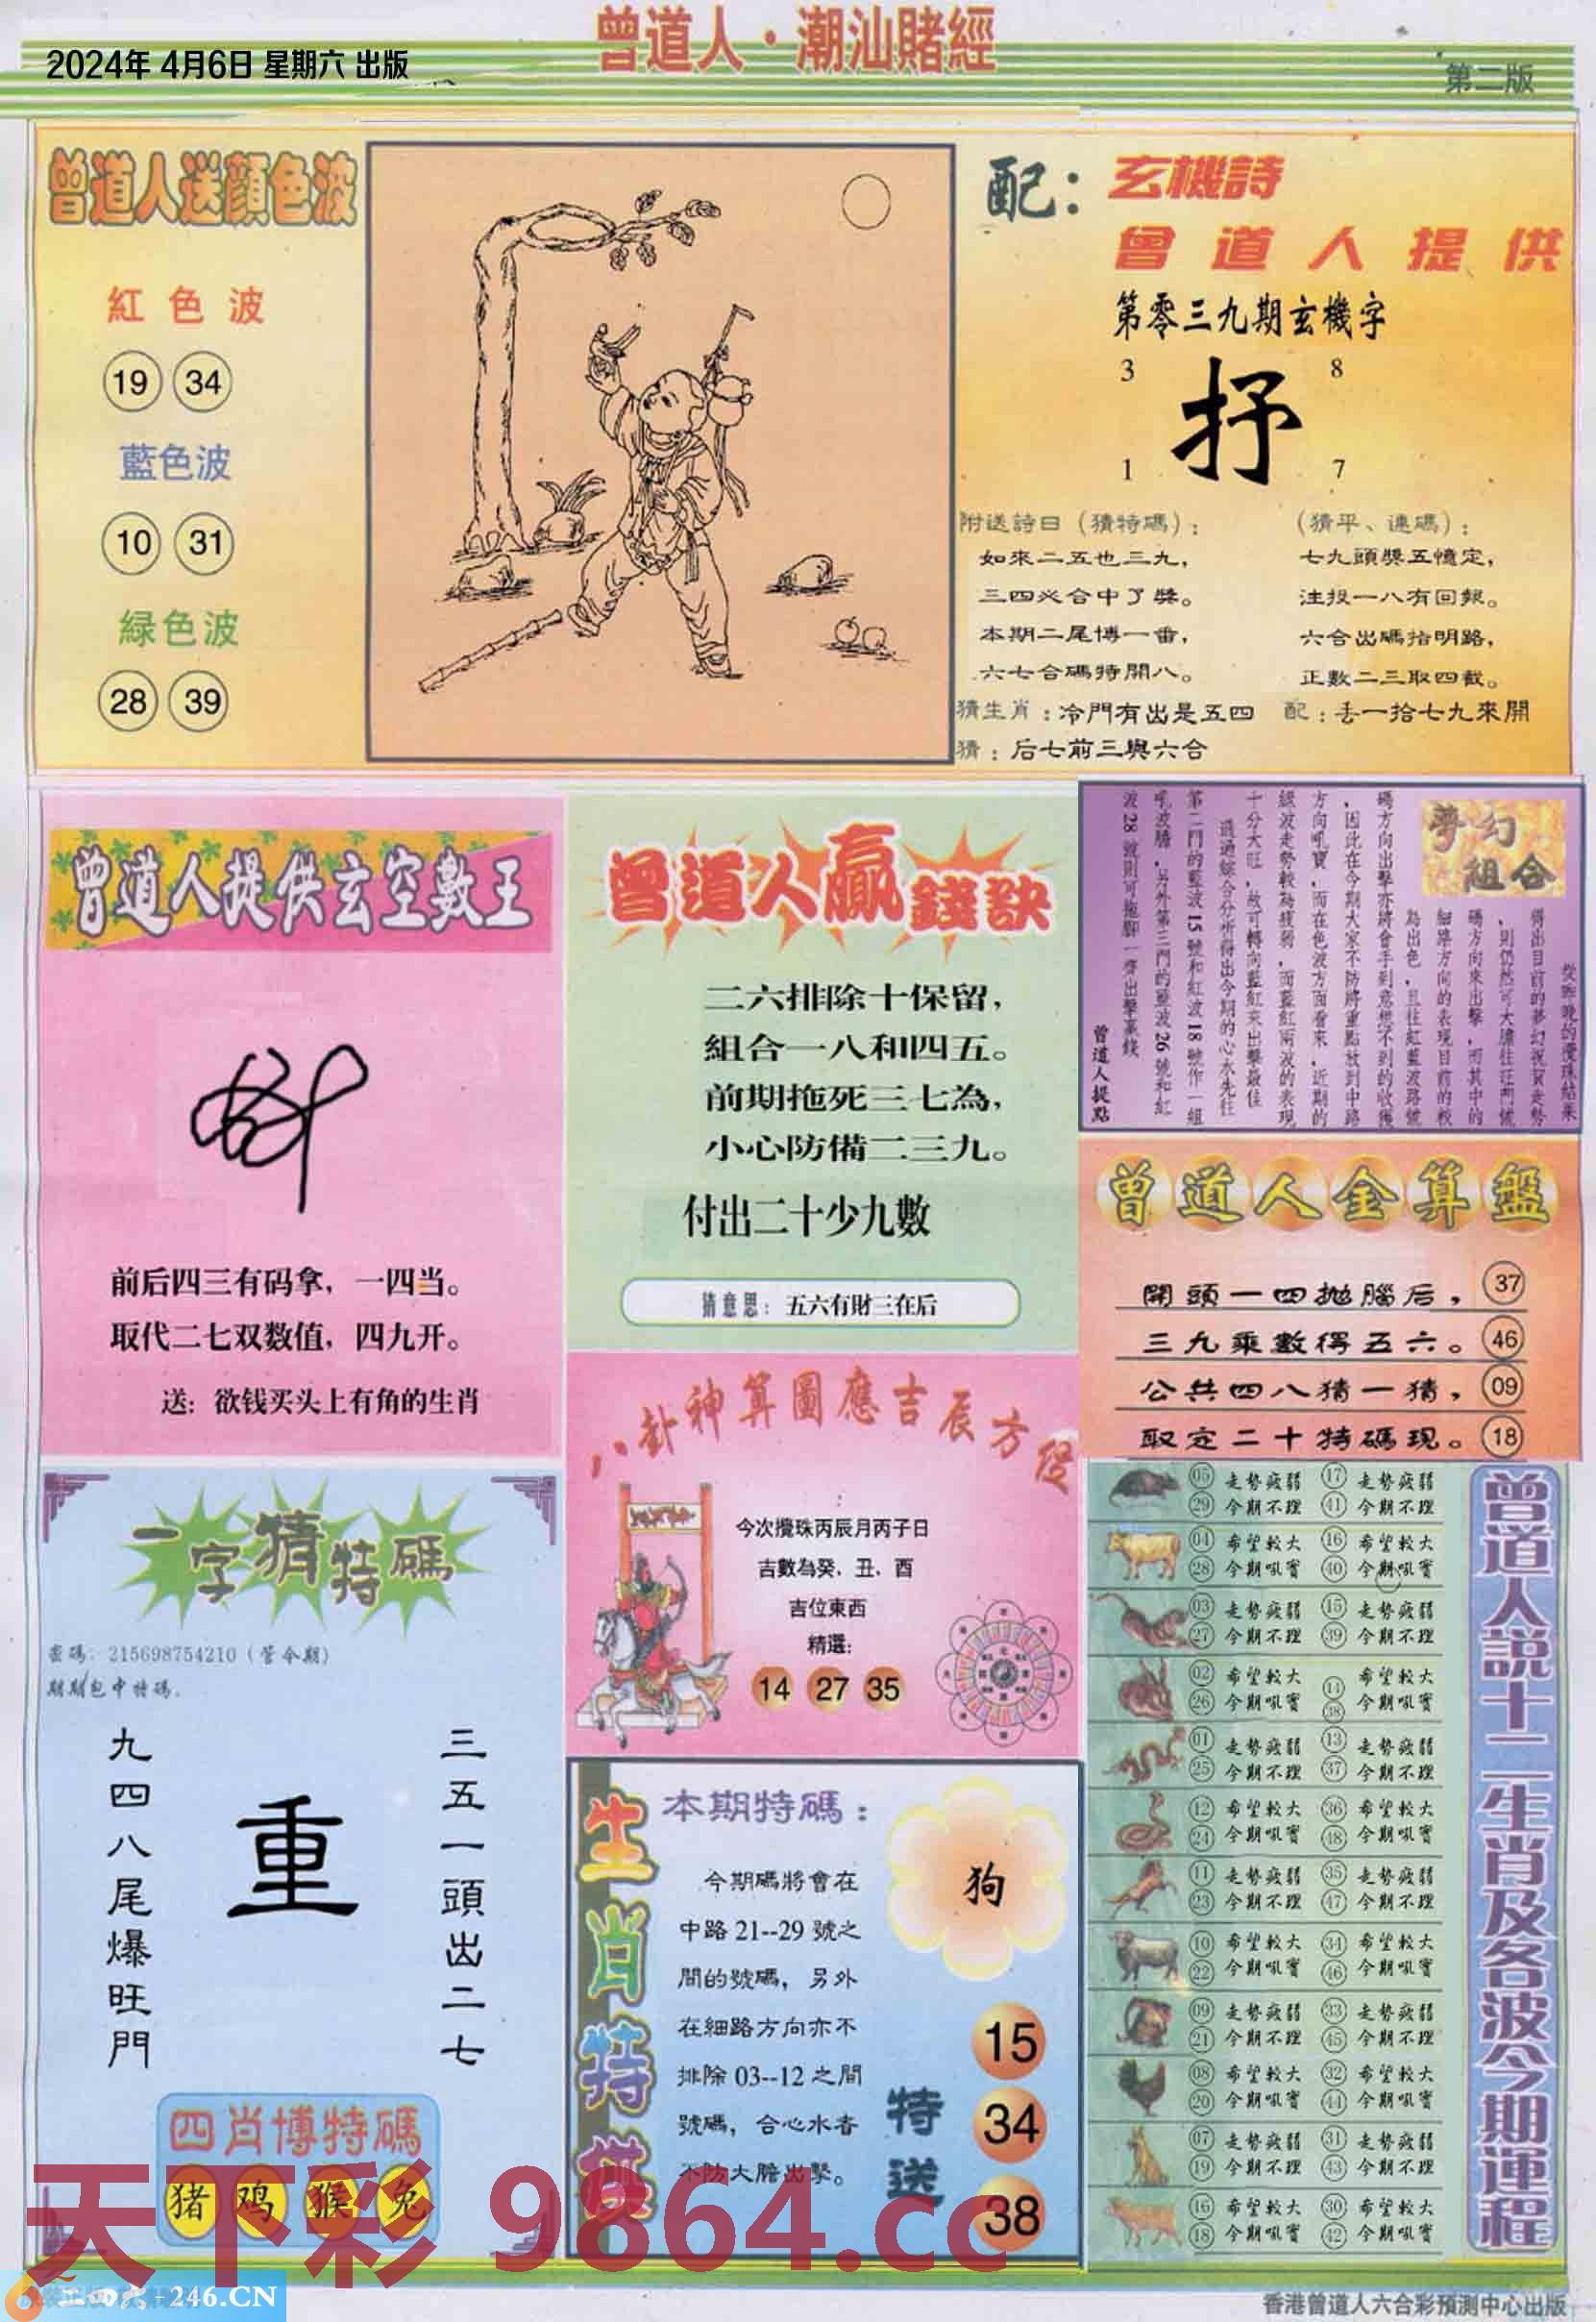 曾道人·潮汕賭經
2024年 4月6日 星期六 出版
第二版
曾道人送顔色波
紅色波
19 34
藍色波
10 31
緑色波
28 39
配：玄機詩
曾道人提供
第零三九期玄機字
3 8
抒
1 7
附送詩曰（猜特碼）：
如來二五也三九，
三四必合中了獎。
本期二尾博一番，
六七合碼特開八。
（猜平、連碼）：
七九頭獎五憶定，
注投一八有回報。
六合出碼指明路，
正數二三取四截。
猜生肖：冷門有出是五四
配：丢一拾七九來開
猜：后七前三與六合
曾道人提供玄空數王
前后四三有码拿，一四当。
取代二七双数值，四九开。
送：欲钱买头上有角的生肖
曾道人贏錢訣
二六排除十保留，
組合一八和四五。
前期拖死三七為，
小心防備二三九。
付出二十少九數
猜意思：五六有財三在后
夢幻
組合
為出色，且往紅藍波路慌
碼方向出擊亦將會手到意想不到的收獲
，因此在今期大家不防將重點放到中路
方向吼寶，而在色波方面看來，近期的
緑波走勢較為疲弱，而藍紅兩波的表現
十分大旺，故可轉向藍紅來出擊最佳
通過綜合分析得出今期的心水先往
第二門的藍波15號和紅波18號作一組
吼波膽，另外第三門的藍波26號和紅
波28號則可拖脚一齊出擊贏錢
曾道人提點
曾道人金算盤
開頭一四拋腦后， 37
三九乘數得五六。 46
公共四八猜一猜， 09
取定二十特碼現。 18
八卦神算圖應吉辰方位
今次攪珠丙辰月丙子日
吉數為癸．丑．酉
吉位東西
精選：
14 27 35
一字猜特碼
密碼：215698754210（管今期）
期期包中特碼．
三五一頭出二七
重
九四八尾爆旺門
四肖博特碼
猪 鸡 猴 兔
生肖特供
本期特碼：
今期碼將會在
中路21--29號之
間的號碼，另外
在細路方向亦不
排除03--12之間
號碼，合心水者
不防大膽出擊。
狗
特送
15
34
38
曾道人説十二生肖及各波今期運程
05 走勢疲弱 17 走勢疲弱
29 今期不理 41 今期不理
04 希望較大 16 希望較大
28 今期吼實 40 今期吼實
03 走勢疲弱 15 走勢疲弱
27 今期不理 39 今期不理
02 希望較大 14 希望較大
26 今期吼實 38 今期吼實
01 走勢疲弱 13 走勢疲弱
25 今期不理 37 今期不理
12 希望較大 36 希望較大
24 今期吼實 48 今期吼實
11 走勢疲弱 35 走勢疲弱
23 今期不理 47 今期不理
10 希望較大 34 希望較大
22 今期吼實 46 今期吼實
09 走勢疲弱 33 走勢疲弱
21 今期不理 45 今期不理
08 希望較大 32 希望較大
20 今期吼實 44 今期吼實
07 走勢疲弱 31 走勢疲弱
19 今期不理 43 今期不理
16 希望較大 30 希望較大
18 今期吼實 42 今期吼實
天下彩 9864.cc
二四六-246.CN
香港曾道人六合彩預測中心出版